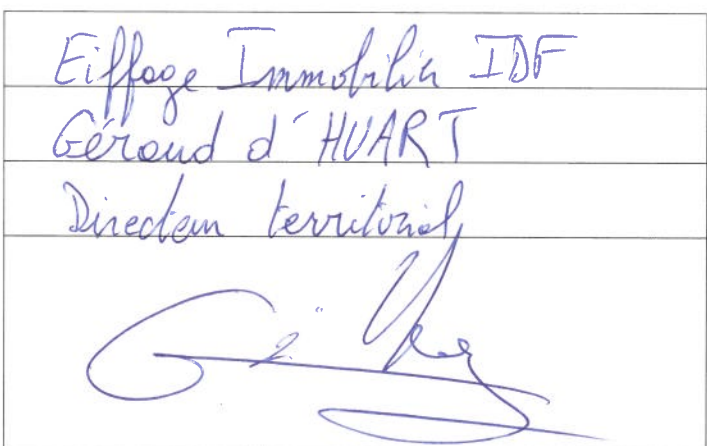 Eiffage Immobilier IDF
Géraud d'HUART
Directeur territorial